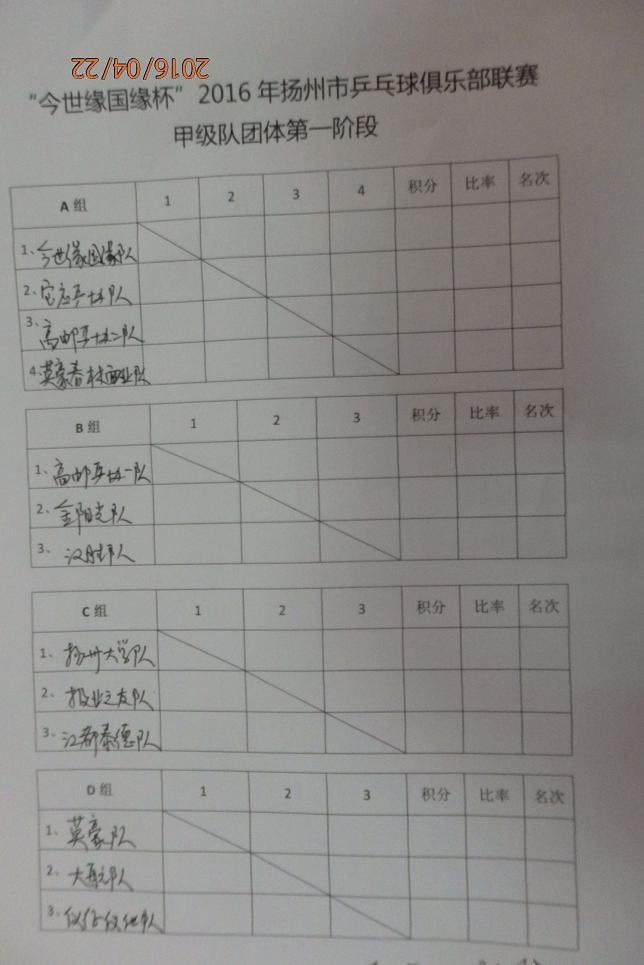 2016/04/22
“今世缘国缘杯”2016年扬州市乒乓球俱乐部联赛
甲级队团体第一阶段
A组 1 2 3 4 积分 比率 名次
1、今世缘国缘队
2、宝应乒协队
3、高邮乒协二队
4、英豪春林画业队
B组 1 2 3 积分 比率 名次
1、高邮乒协一队
2、金阳光队
3、
C组 1 2 3 积分 比率 名次
1、扬州大学队
2、报业之友队
3、江都泰德队
D组 1 2 3 积分 比率 名次
1、英豪队
2、大航队
3、